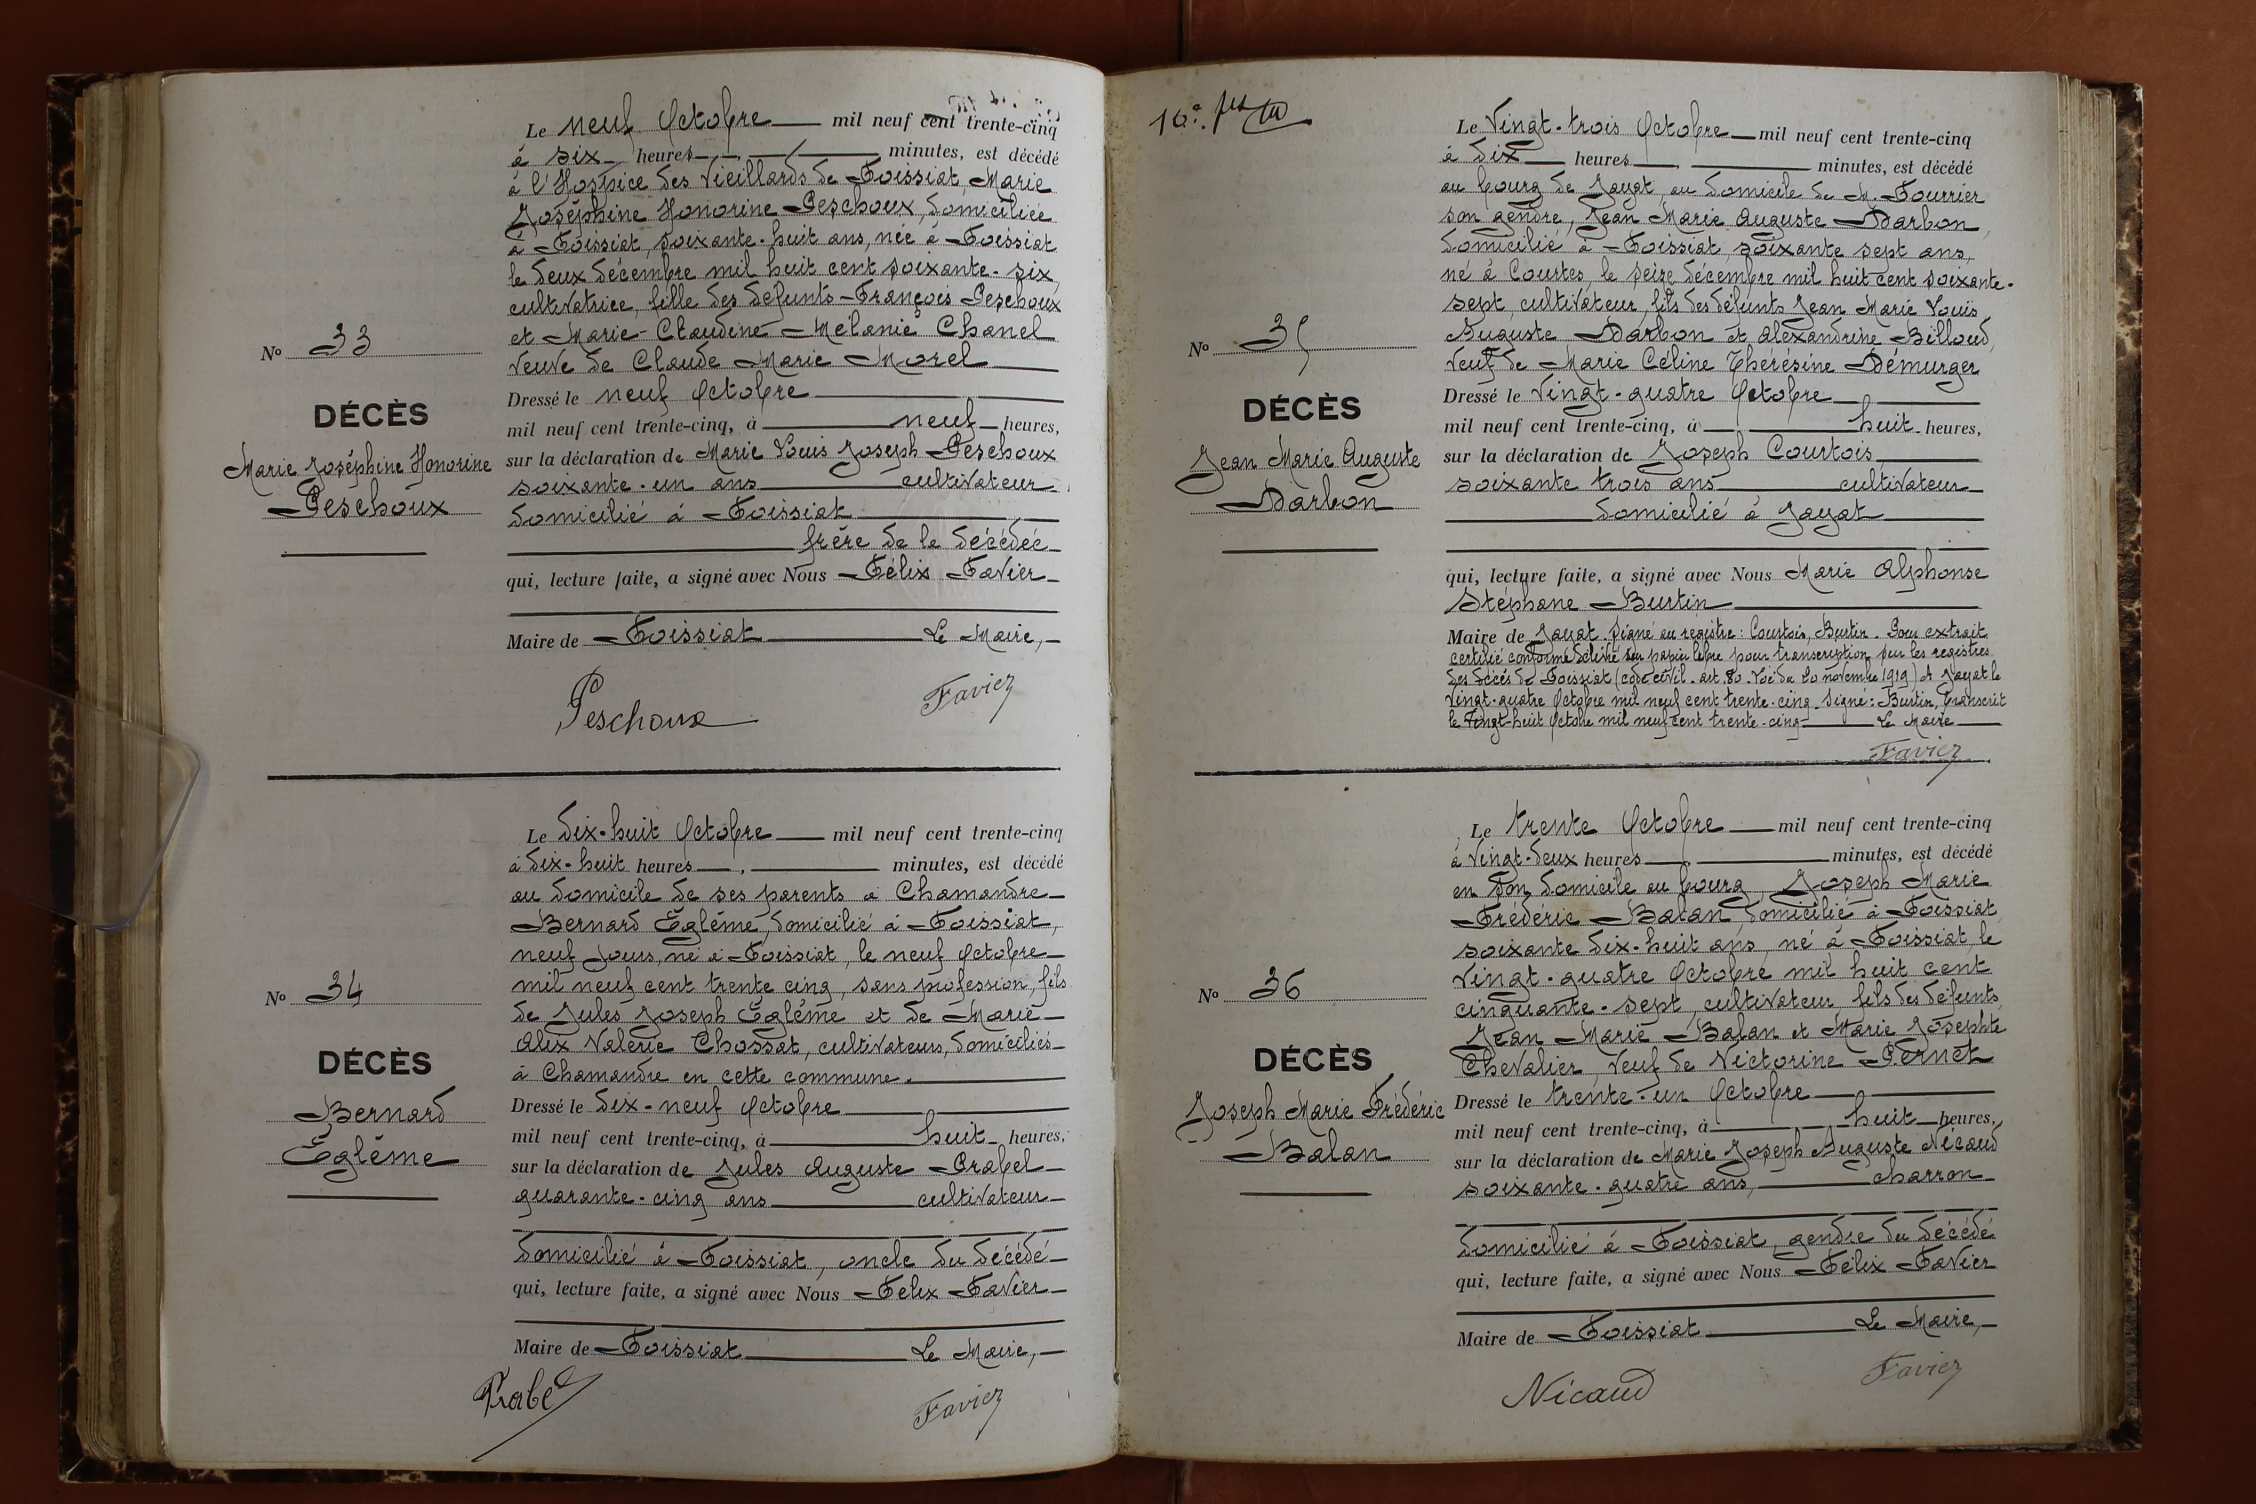 Le neuf Octobre mil neuf cent trente-cinq
à six heures minutes, est décédé
à l'Hospice des Vieillards de Foissiat, Marie
Joséphine Honorine Peschoux, domiciliée
à Foissiat, soixante-huit ans, née à Foissiat
le deux décembre mil huit cent soixante-six,
cultivatrice, fille des défunts François Peschoux
et Marie-Claudine Mélanie Chanel
veuve de Claude Marie Morel
No 33
DÉCÈS
Marie Joséphine Honorine
Peschoux
Dressé le neuf Octobre
mil neuf cent trente-cinq, à neuf heures,
sur la déclaration de Marie Louis Joseph Peschoux
soixante-un ans cultivateur
domicilié à Foissiat
frère de la décédée
qui, lecture faite, a signé avec Nous Félix Favier
Maire de Foissiat Le Maire,
Peschoux Favier
Le dix-huit Octobre mil neuf cent trente-cinq
à dix-huit heures minutes, est décédé
au domicile de ses parents a Chamandre
Bernard Eglème, domicilié à Foissiat,
neuf jours, né à Foissiat, le neuf Octobre
mil neuf cent trente cinq, sans profession, fils
de Jules Joseph Eglème et de Marie
Alix Valérie Chossat, cultivateurs, domiciliés
à Chamandre en cette commune.
No 34
DÉCÈS
Bernard
Eglème
Dressé le dix-neuf Octobre
mil neuf cent trente-cinq, à huit heures,
sur la déclaration de Jules Auguste Prabel
quarante-cinq ans cultivateur
domicilié à Foissiat, oncle du décédé
qui, lecture faite, a signé avec Nous Félix Favier
Maire de Foissiat Le Maire,
Prabel Favier
16e
Le Vingt-trois Octobre mil neuf cent trente-cinq
à dix heures minutes, est décédé
au bourg de Jayat, au domicile de M. Fourrier
son gendre, Jean Marie Auguste Darbon,
domicilié à Foissiat, soixante sept ans,
né à Courtes, le seize décembre mil huit cent soixante-
sept, cultivateur, fils des défunts Jean Marie Louis
Auguste Darbon et Alexandrine Billoud,
veuf de Marie Céline Thérésine Démurger
No 35
DÉCÈS
Jean Marie Auguste
Darbon
Dressé le Vingt-quatre Octobre
mil neuf cent trente-cinq, à huit heures,
sur la déclaration de Joseph Courtois
soixante trois ans cultivateur
domicilié à Jayat
qui, lecture faite, a signé avec Nous Marie Alphonse
Stéphane Burtin
Maire de Jayat. Signé au registre: Courtois, Burtin. Pour extrait
certifié conforme délivré sur papier libre pour transcription sur les registres
des décès de Foissiat (code civil. art. 80. Loi du 20 novembre 1919) A Jayat le
Vingt-quatre Octobre mil neuf cent trente-cinq. Signé: Burtin. Transcrit
le Vingt-huit Octobre mil neuf cent trente-cinq Le Maire
Favier
Le trente Octobre mil neuf cent trente-cinq
à Vingt-deux heures minutes, est décédé
en son domicile au bourg Joseph Marie
Frédéric Balan domicilié à Foissiat
soixante dix-huit ans, né à Foissiat le
Vingt-quatre Octobre mil huit cent
cinquante-sept, cultivateur, fils des défunts
Jean Marie Balan et Marie Josephte
Chevalier, veuf de Victorine Pernet
No 36
DÉCÈS
Joseph Marie Frédéric
Balan
Dressé le trente-un Octobre
mil neuf cent trente-cinq, à huit heures,
sur la déclaration de Marie Joseph Auguste Nicaud
soixante-quatre ans, charron
domicilié à Foissiat, gendre du décédé
qui, lecture faite, a signé avec Nous Félix Favier
Maire de Foissiat Le Maire,
Nicaud Favier